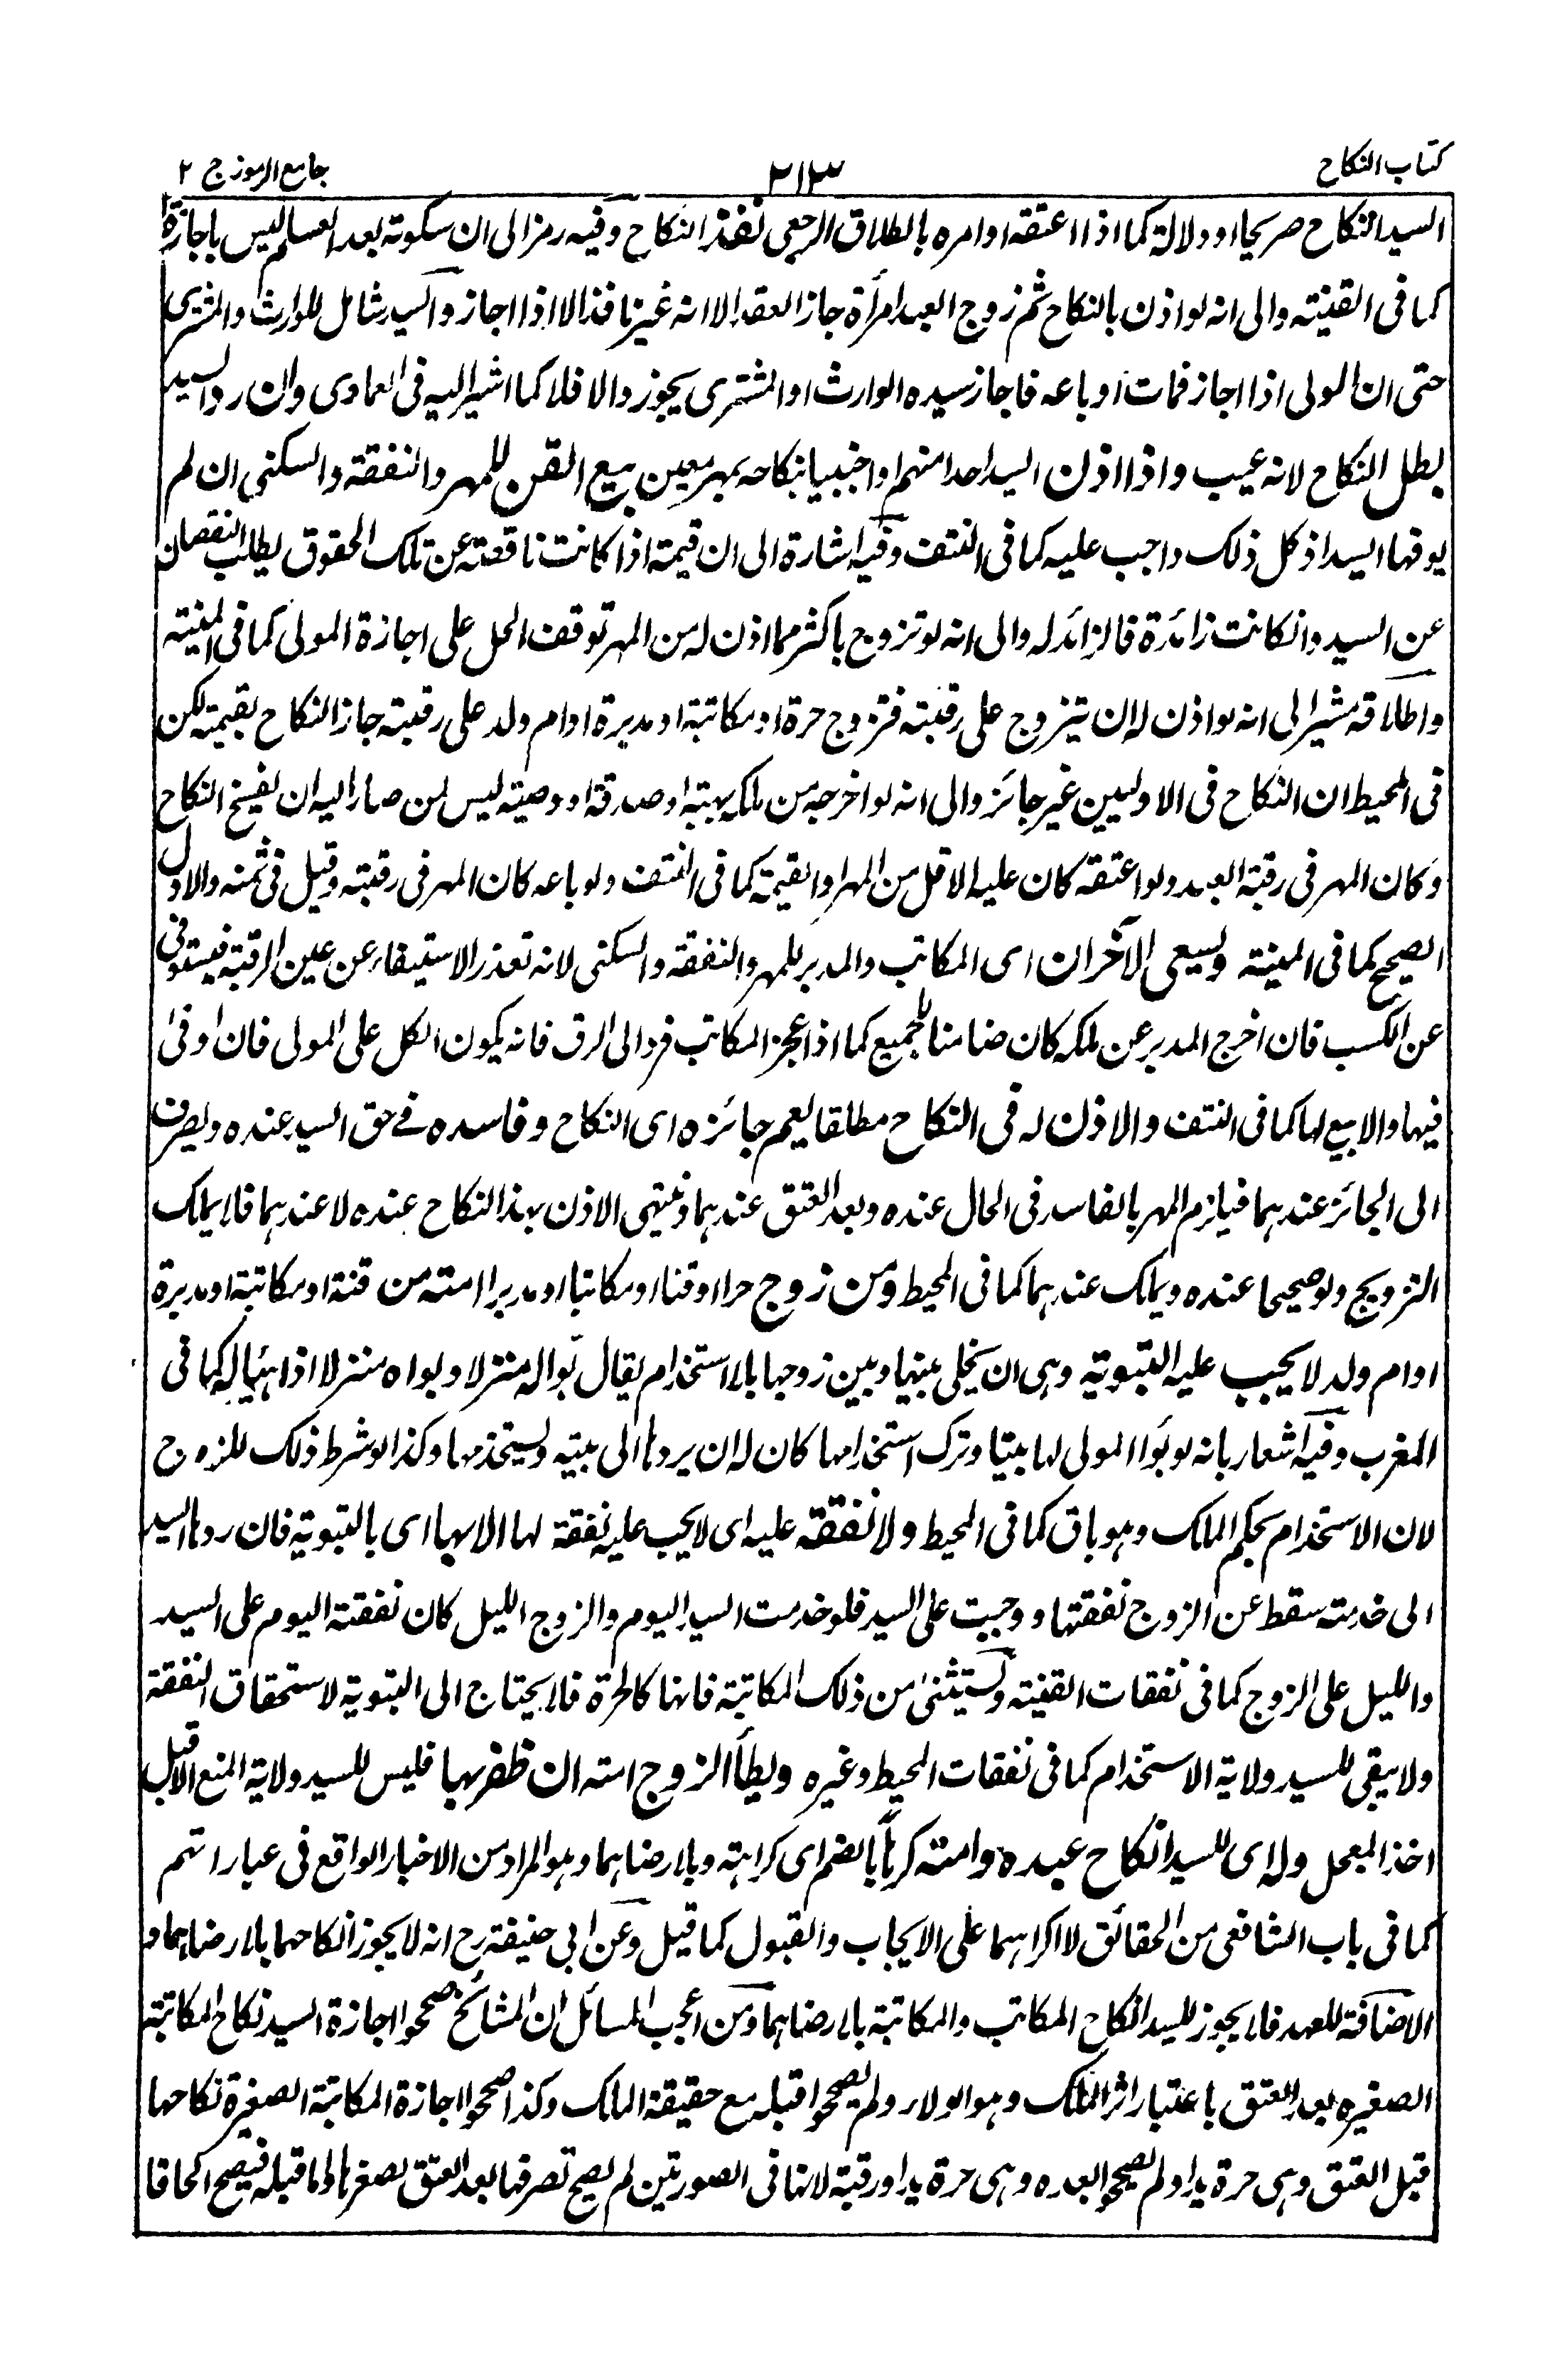 كتاب النكاح
٢١٣
جامع الرموز ج ٢
السيد النكاح صريحا او دلالة كما اذا اعتقه او امره بالطلاق الرجعى نفذ النكاح وفيه رمز الى ان سكوته بعد العلم ليس باجازة
كما فى القنية والى انه لو اذن بالنكاح ثم زوج العبد امرأة جاز العقد الا انه غير نافذ الا اذا اجاز والسيد شامل للوارث والمشترى
حتى ان المولى اذا اجاز فمات او باعه فاجاز سيده الوارث او المشترى يجوز والا فلا كما اشير اليه فى العمادى وان رد السيد
بطل النكاح لانه عيب واذا اذن السيد احدا منهم او اجنبيا بنكاحه بمهر معين بيع القن للمهر والنفقة والسكنى ان لم
يوفها السيد اذ كل ذلك واجب عليه كما فى النتف وفيه اشارة الى ان قيمة اذا كانت ناقصة عن تلك الحقوق يطالب النقصان
عن السيد وانكانت زائدة فالزائد له والى انه لو تزوج باكثر مما اذن له من المهر توقف الحل على اجازة المولى كما فى المنية
واطلاقه مشير الى انه لو اذن له ان يتزوج على رقبته فتزوج حرة او مكاتبة او مدبرة او ام ولد على رقبته جاز النكاح بقيمته لكن
فى المحيط ان النكاح فى الاوليين غير جائز والى انه لو اخرجه من ملكه بهبة او صدقة او وصية ليس لمن صار اليه ان يفسخ النكاح
وكان المهر فى رقبة العبد ولو اعتقه كان عليه الاقل من المهر او القيمة كما فى النتف ولو باعه كان المهر فى رقبته وقيل فى ثمنه والاول
الصحيح كما فى المنية ويسعى الآخران اى المكاتب والمدبر للمهر والنفقة والسكنى لانه تعذر الاستيفاء عن عين الرقبة فيستوفى
عن الكسب فان اخرج المدبر عن ملكه كان ضامنا للجميع كما اذا عجز المكاتب فرد الى الرق فانه يكون الكل على المولى فان اوفى
فيها والا بيع لها كما فى النتف والاذن له فى النكاح مطلقا يعم جائزه اى النكاح وفاسده فے حق السيد عنده ويصرف
الى الجائز عندهما فيلزم المهر بالفاسد فى الحال عنده وبعد العتق عندهما وينتهى الاذن بهذا النكاح عنده لا عندهما فلا يملك
التزويج ولو صحيحا عنده ويملك عندهما كما فى المحيط ومن زوج حرا او قنا او مكاتبا او مدبرا امته من قنة او مكاتبة او مدبرة
او ام ولد لا يجب عليه التبوية وهى ان يخلى بينها وبين زوجها بلا استخدام يقال بوأ له منزلا وبواه منزلا اذا هيأ له كما فى
المغرب وفيه اشعار بانه لو بوأ المولى لها بيتا وترك استخدامها كان له ان يردها الى بيته ويستخدمها وكذا لو شرط ذلك للزوج
لان الاستخدام بحكم الملك وهو باق كما فى المحيط ولا نفقة عليه اى لا يجب عليه نفقة لها الا بها اى بالتبوية فان ردها السيد
الى خدمته سقط عن الزوج نفقتها ووجبت على السيد فلو خدمت السيد اليوم والزوج الليل كان نفقة اليوم على السيد
والليل على الزوج كما فى نفقات القنية ويستثنى من ذلك المكاتبة فانها كالحرة فلا يحتاج الى التبوية لاستحقاق النفقة
ولا يبقى للسيد ولاية الاستخدام كما فى نفقات المحيط وغيره ويطأ الزوج امته ان ظفر بها فليس للسيد ولاية المنع الا قبل
اخذ المعجل وله اى للسيد انكاح عبده وامته كرها بالضم اى كراهته وبلا رضاهما وهو المراد من الاخبار الواقع فى عباراتهم
كما فى باب الشافعى من الحقائق لا اكراههما على الايجاب والقبول كما قيل وعن ابى حنيفة رح انه لا يجوز انكاحهما بلا رضاهما و
الاضافة للعهد فلا يجوز للسيد انكاح المكاتب والمكاتبة بلا رضاهما ومن اعجب المسائل ان المشائخ صححوا اجازة السيد نكاح المكاتبة
الصغيره بعد العتق باعتبار اثر الملك وهو الولاء ولم يصححوا قبله مع حقيقة الملك وكذا صححوا اجازة المكاتبة الصغيرة نكاحها
قبل العتق وهى حرة يدا ولم يصححوا بعده وهى حرة يدا ورقبة لانها فى الصورتين لم يصح تصرفها بعد العتق لصغرها واما قبله فيصح الحاقا